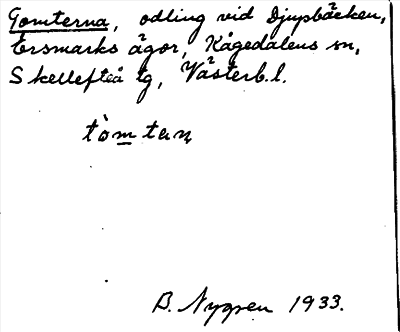 Tomterna, odling vid Djupbäcken,
Ersmarks ägor, Kågedalens sn,
Skellefteå tg, Västerb. l.
tòm̲tan̩
B. Nygren 1933.